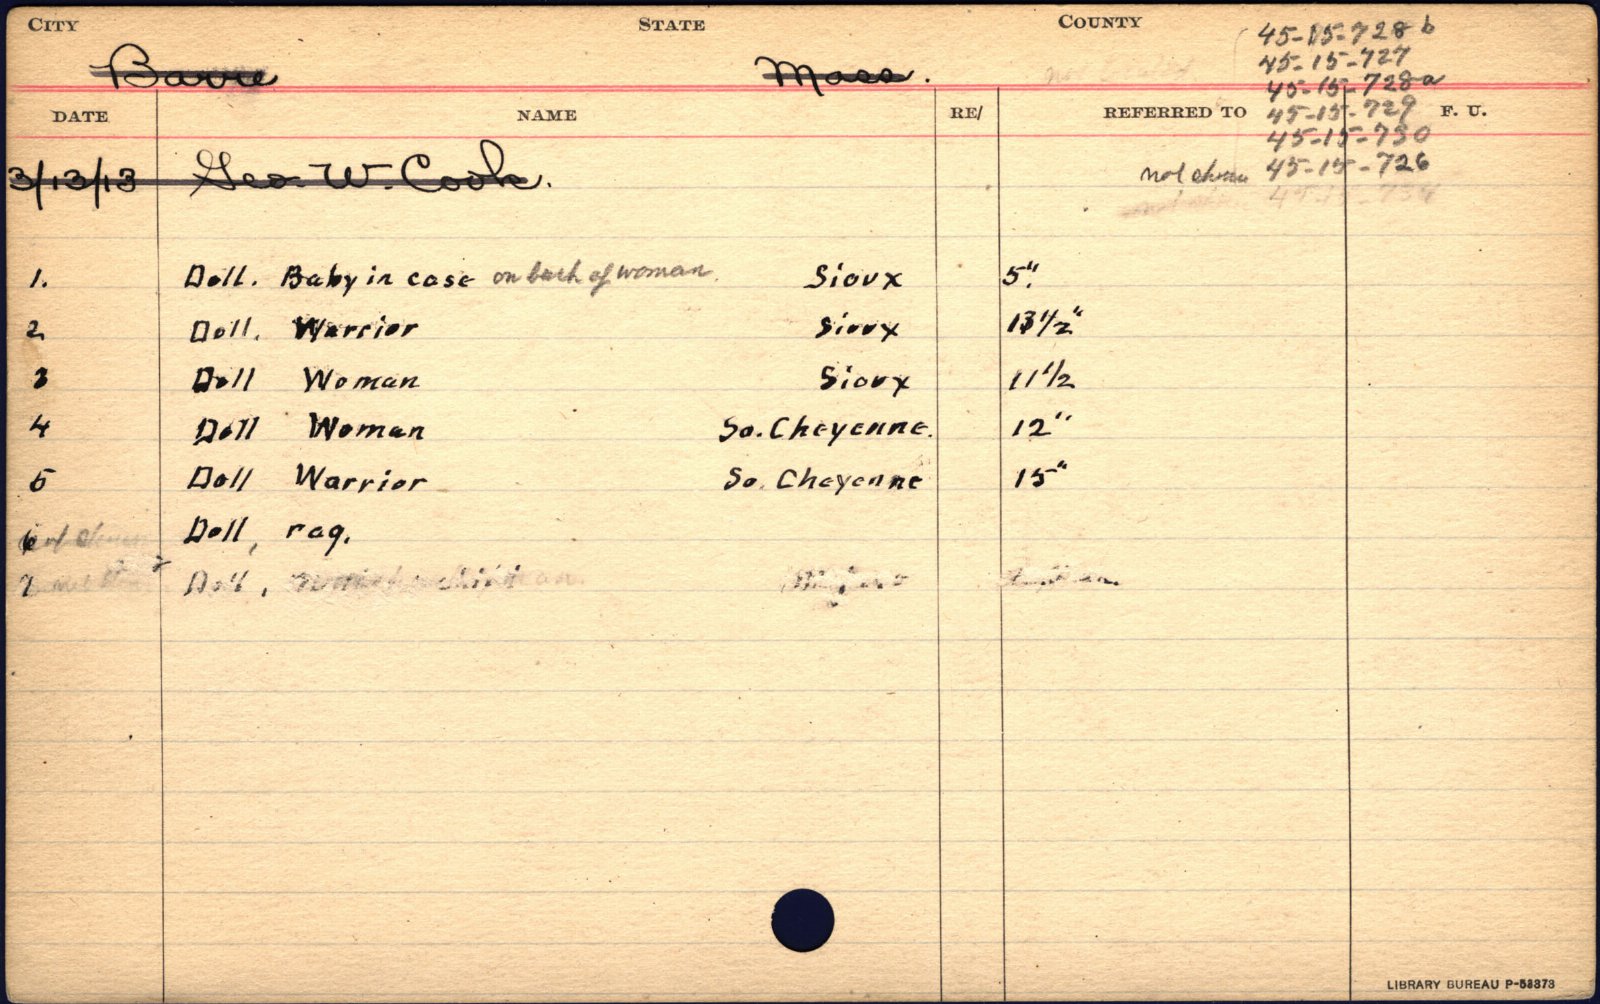 CITY STATE COUNTY
45-15-728 b
Barre Mass.
45-15-727
45-15-728a
DATE NAME RE/ REFERRED TO F. U.
45-15-729
45-15-730
3/13/13 Geo. W. Cook.
not 45-15-726
1. Doll. Baby in case on back of woman. Sioux 5"
2 Doll. Warrior Sioux 13 1/2"
3 Doll Woman Sioux 11 1/2
4 Doll Woman So. Cheyenne. 12"
5 Doll Warrior So. Cheyenne 15"
6 Doll, rag.
7 Doll,
LIBRARY BUREAU P-53373